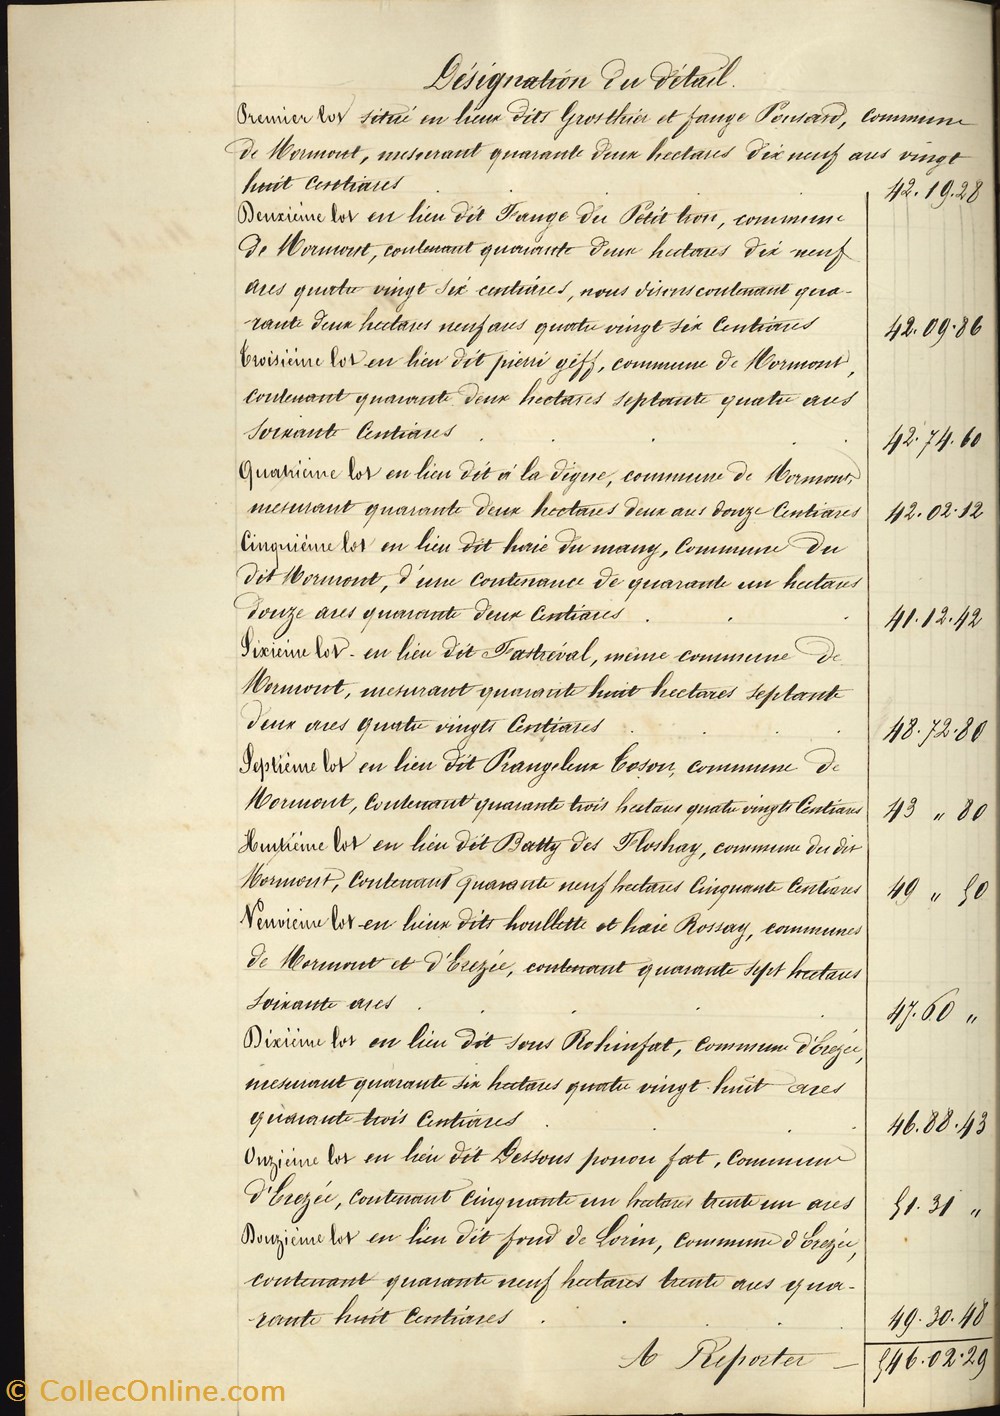 Désignation du détail.
Premier lot situé en lieux dits Grosthier et fange Ponsard, commune
de Mormont, mesurant quarante deux hectares dix neuf ares vingt
huit centiares . . . 42.19.28
Deuxième lot en lieu dit Fange du Petit han, commune
de Mormont, contenant quarante deux hectares dix neuf
ares quatre vingt six centiares, nous disons contenant qua-
rante deux hectares neuf ares quatre vingt six centiares 42.09.86
Troisième lot en lieu dit pierri geff, commune de Mormont,
contenant quarante deux hectares septante quatre ares
soixante centiares . . . 42.74.60
Quatrième lot en lieu dit à la digue, commune de Mormont,
mesurant quarante deux hectares deux ares douze centiares 42.02.12
Cinquième lot en lieu dit haie du many, commune du
dit Mormont, d'une contenance de quarante un hectares
douze ares quarante deux centiares . . . 41.12.42
Sixième lot - en lieu dit Fastréval, même commune de
Mormont, mesurant quarante huit hectares septante
deux ares quatre vingts centiares . . . 48.72.80
Septième lot en lieu dit Prangeleux Coson, commune de
Mormont, contenant quarante trois hectares quatre vingts centiares 43 " 80
Huitième lot en lieu dit Batty des Floshay, commune du dit
Mormont, contenant quarante neuf hectares cinquante centiares 49 " 50
Neuvième lot en lieux dits houllette et haie Rossay, communes
de Mormont et d'Erezée, contenant quarante sept hectares
soixante ares . . . . 47.60 "
Dixième lot en lieu dit sous Rohinfat, commune d'Erezée,
mesurant quarante six hectares quatre vingt huit ares
quarante-trois centiares . . . 46.88.43
Onzième lot en lieu dit Dessous ponou fat, commune
d'Erezée, contenant cinquante un hectares trente un ares 51.31 "
Douzième lot en lieu dit fond de Lorin, commune d'Erezée,
contenant quarante neuf hectares trente ares qua-
rante huit centiares . . . . 49.30.48
A Reporter — 546.02.29
© CollecOnline.com